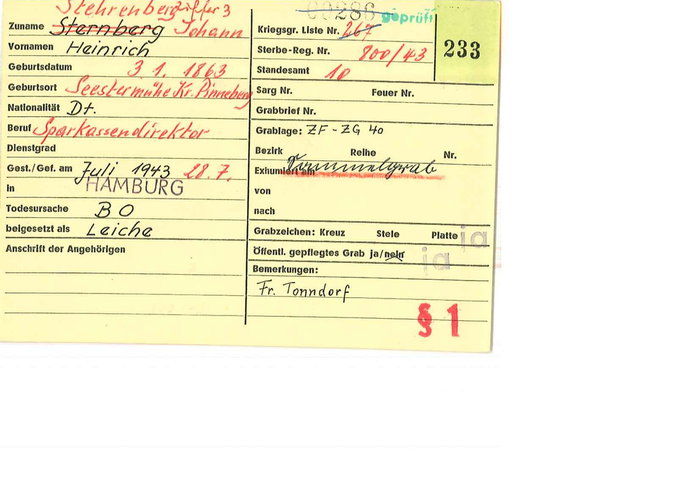 Stehrenberg Ziffer 3
Zuname Sternberg Johann
Vornamen Heinrich
Geburtsdatum 3. 1. 1863
Geburtsort Seestermühe Kr. Pinneburg
Nationalität Dt.
Beruf Sparkassendirektor
Dienstgrad
Gest./Gef. am Juli 1943 28.7.
in HAMBURG
Todesursache BO
beigesetzt als Leiche
Anschrift der Angehörigen
00286 geprüft
Kriegsgr. Liste Nr. 267
Sterbe-Reg. Nr. 800/43
Standesamt 10
233
Sarg Nr. Feuer Nr.
Grabbrief Nr.
Grablage: ZF-ZG 40
Bezirk Reihe Nr.
Exhumiert am Sammelgrab
von
nach
Grabzeichen: Kreuz Stele Platte ja
Öffentl. gepflegtes Grab ja/nein ja
Bemerkungen:
Fr. Tonndorf
§ 1